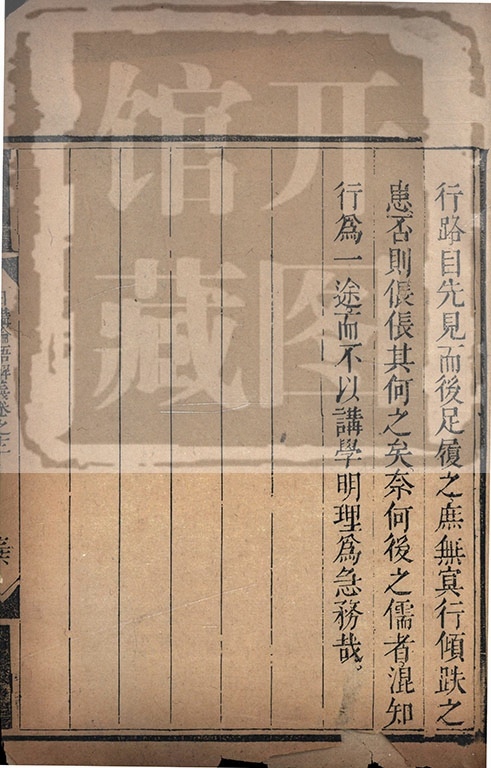 行路目先見而後足履之庶無冥行傾跌之
患否則倀倀其何之矣奈何後之儒者混知
行爲一途而不以講學明理爲急務哉
日講論語解義卷之
开图
馆藏